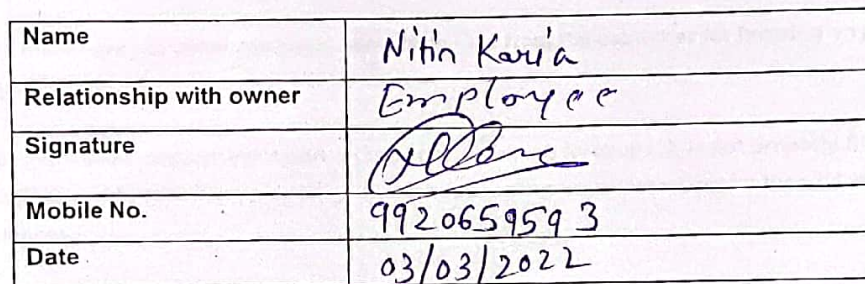 Name Nitin Karia
Relationship with owner Employee
Signature
Mobile No. 9920659593
Date 03/03/2022